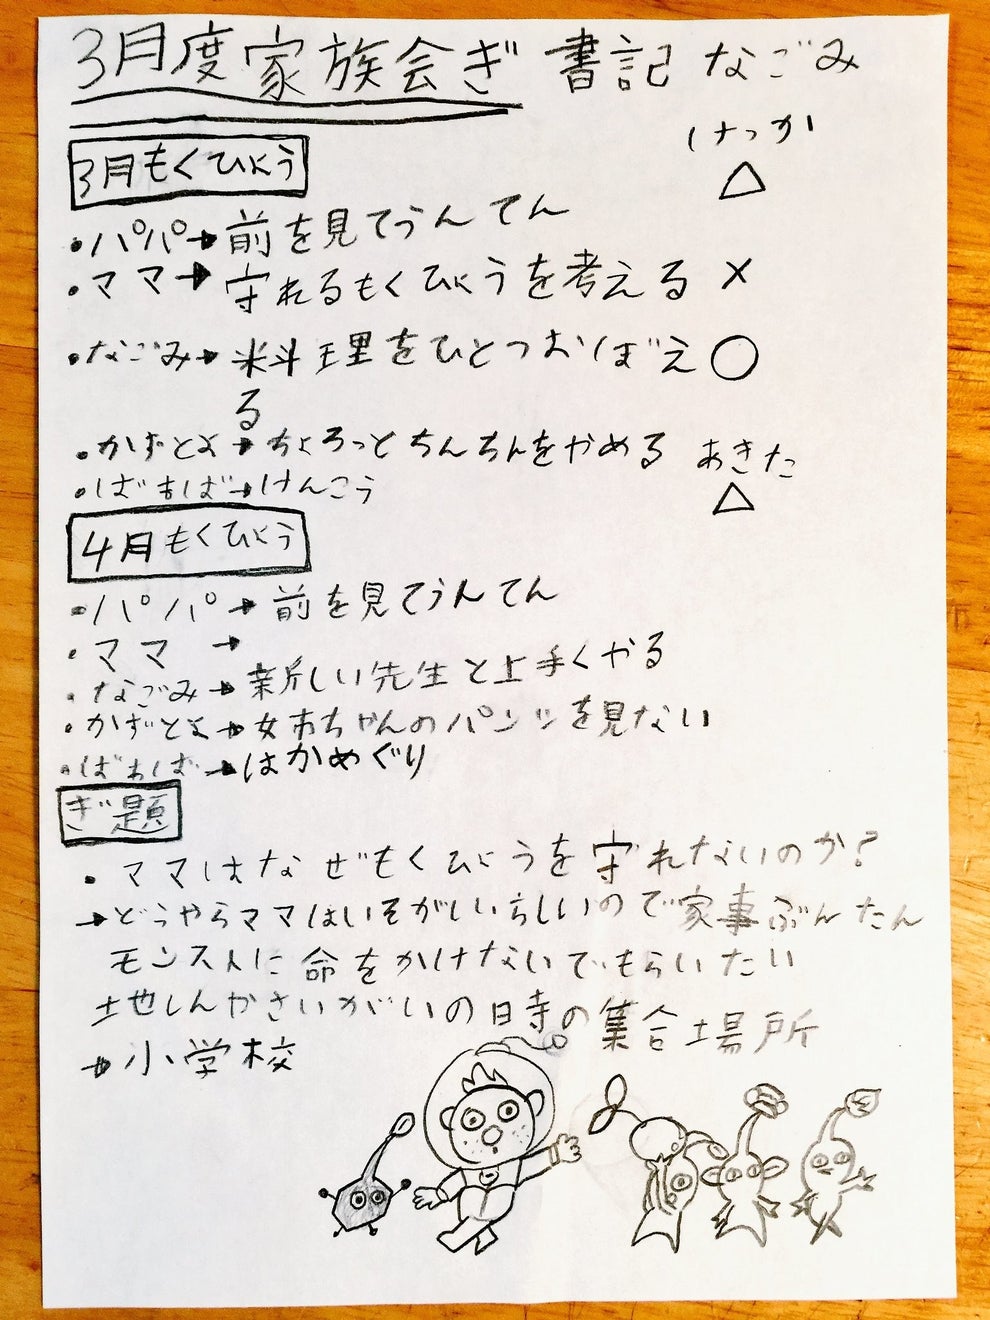 3月度家族会ぎ 書記 なごみ
けっか
3月もくひょう
・パパ→前を見てうんてん △
・ママ→守れるもくひょうを考える ×
・なごみ→料理をひとつおぼえ ○
る
・かずとよ→ちょろっとちんちんをやめる あきた
・ばあば→けんこう △
4月もくひょう
・パパ→前を見てうんてん
・ママ→
・なごみ→新しい先生と上手くやる
・かずとよ→女市ちゃんのパンツを見ない
・ばあば→はかめぐり
ぎ題
・ママはなぜもくひょうを守れないのか?
→どうやらママはいそがしいらしいので家事ぶんたん
モンストに命をかけないでもらいたい
土地しんかさいがいの日寺の集合場所
→小学校